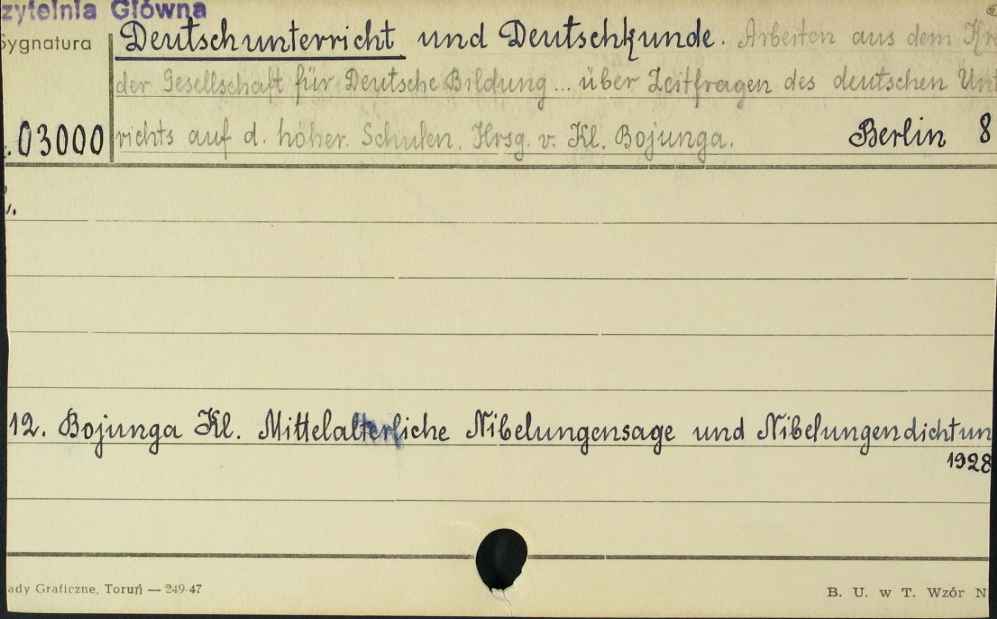 zytelnia Główna
Sygnatura Deutschunterricht und Deutschkunde. Arbeiten aus dem Kr
der Gesellschaft für Deutsche Bildung... über Zeitfragen des deutschen Un
.03000 richts auf d. höher. Schulen. Hrsg. v. Kl. Bojunga. Berlin 8
12. Bojunga Kl. Mittelalterliche Nibelungensage und Nibelungendichtun
1928
ady Graficzne, Toruń — 249-47 B. U. w T. Wzór N